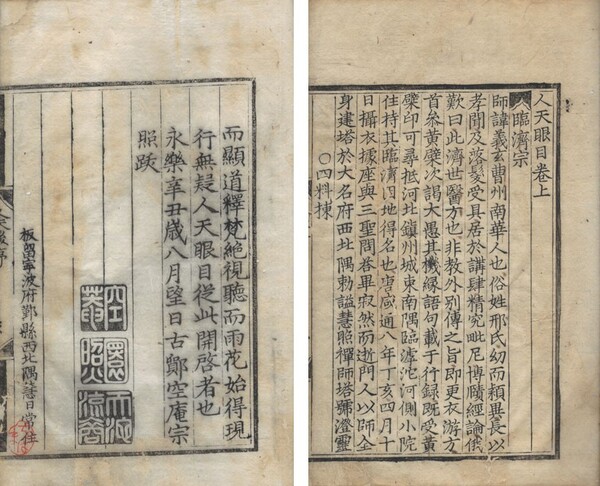 人天眼目卷上
臨濟宗
師諱義玄曹州南華人也俗姓邢氏幼而穎異長以
孝聞及落髮受具居於講肆精究毗尼博賾經論俄
歎曰此濟世醫方也非教外別傳之旨即更衣游方
首參黃檗次謁大愚其機緣語句載于行録既受黃
檗印可尋抵河北鎮州城東南隅臨滹沱河側小院
住持其臨濟因地得名也唐咸通八年丁亥四月十
日攝衣據座與三聖問荅畢寂然而逝門人以師全
身建塔於大名府西北隅勑謚慧照禪師塔號澄靈
〇四料揀
而顯道釋梵絕視聽而雨花始得現
行無疑人天眼目從此開啓者也
永樂辛丑歲八月望日古鄮空庵宗
照跋
板留寧波府鄞縣西北隅慧日常住